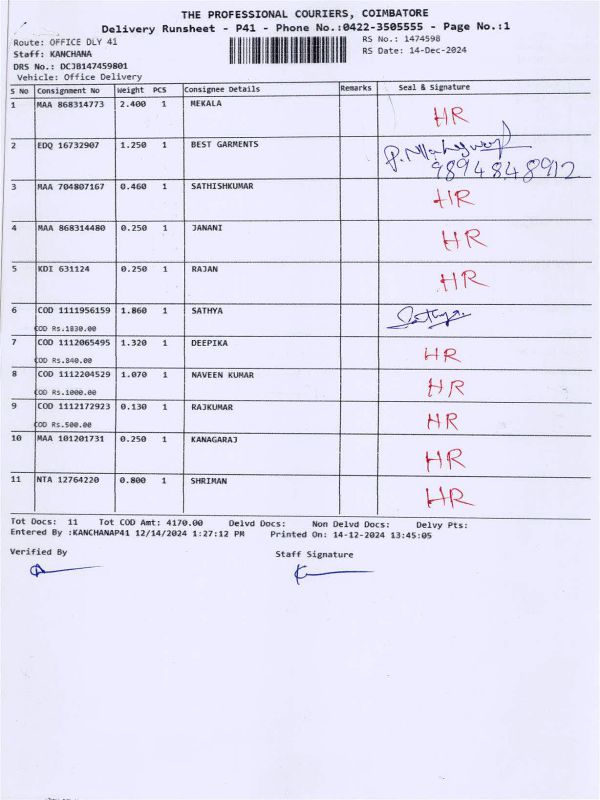 THE PROFESSIONAL COURIERS, COIMBATORE
Delivery Runsheet - P41 - Phone No.:0422-3505555 - Page No.:1
Route: OFFICE DLY 41 RS No.: 1474598
Staff: KANCHANA RS Date: 14-Dec-2024
DRS No.: DCJB147459801
Vehicle: Office Delivery
S No Consignment No Weight PCS Consignee Details Remarks Seal & Signature
1 MAA 868314773 2.400 1 MEKALA HR
2 EDQ 16732907 1.250 1 BEST GARMENTS
9894848912
3 MAA 704807167 0.460 1 SATHISHKUMAR HR
4 MAA 868314480 0.250 1 JANANI HR
5 KDI 631124 0.250 1 RAJAN HR
6 COD 1111956159 1.860 1 SATHYA Sathya
COD Rs.1830.00
7 COD 1112065495 1.320 1 DEEPIKA HR
COD Rs.840.00
8 COD 1112204529 1.070 1 NAVEEN KUMAR HR
COD Rs.1000.00
9 COD 1112172923 0.130 1 RAJKUMAR HR
COD Rs.500.00
10 MAA 101201731 0.250 1 KANAGARAJ HR
11 NTA 12764220 0.800 1 SHRIMAN HR
Tot Docs: 11 Tot COD Amt: 4170.00 Delvd Docs: Non Delvd Docs: Delvy Pts:
Entered By :KANCHANAP41 12/14/2024 1:27:12 PM Printed On: 14-12-2024 13:45:05
Verified By Staff Signature